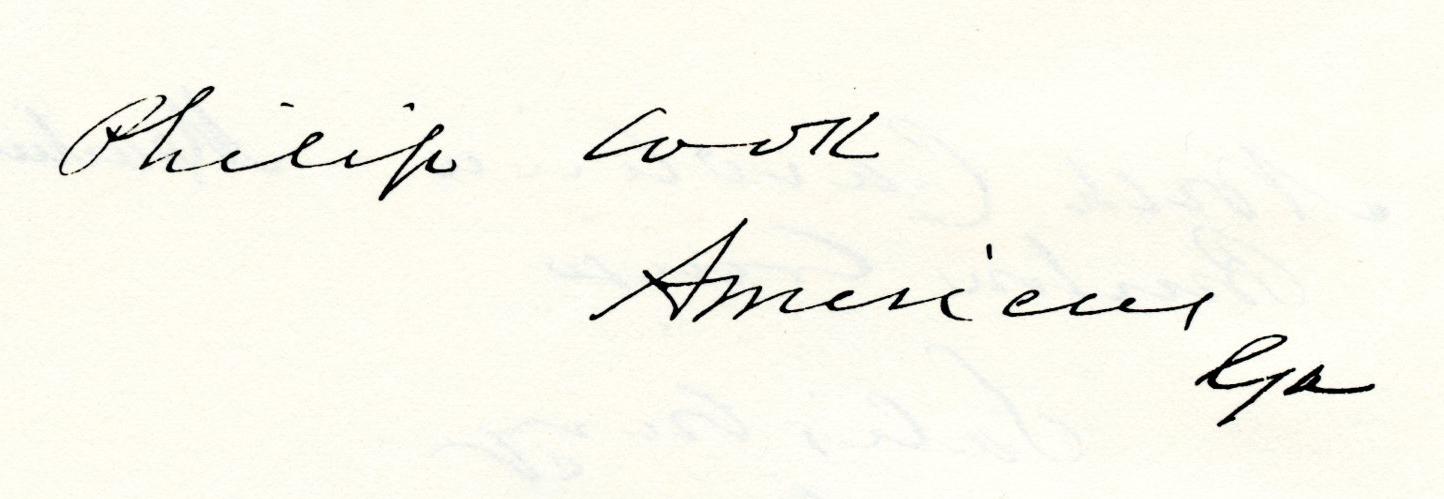 Philip Cook
Americus
Ga